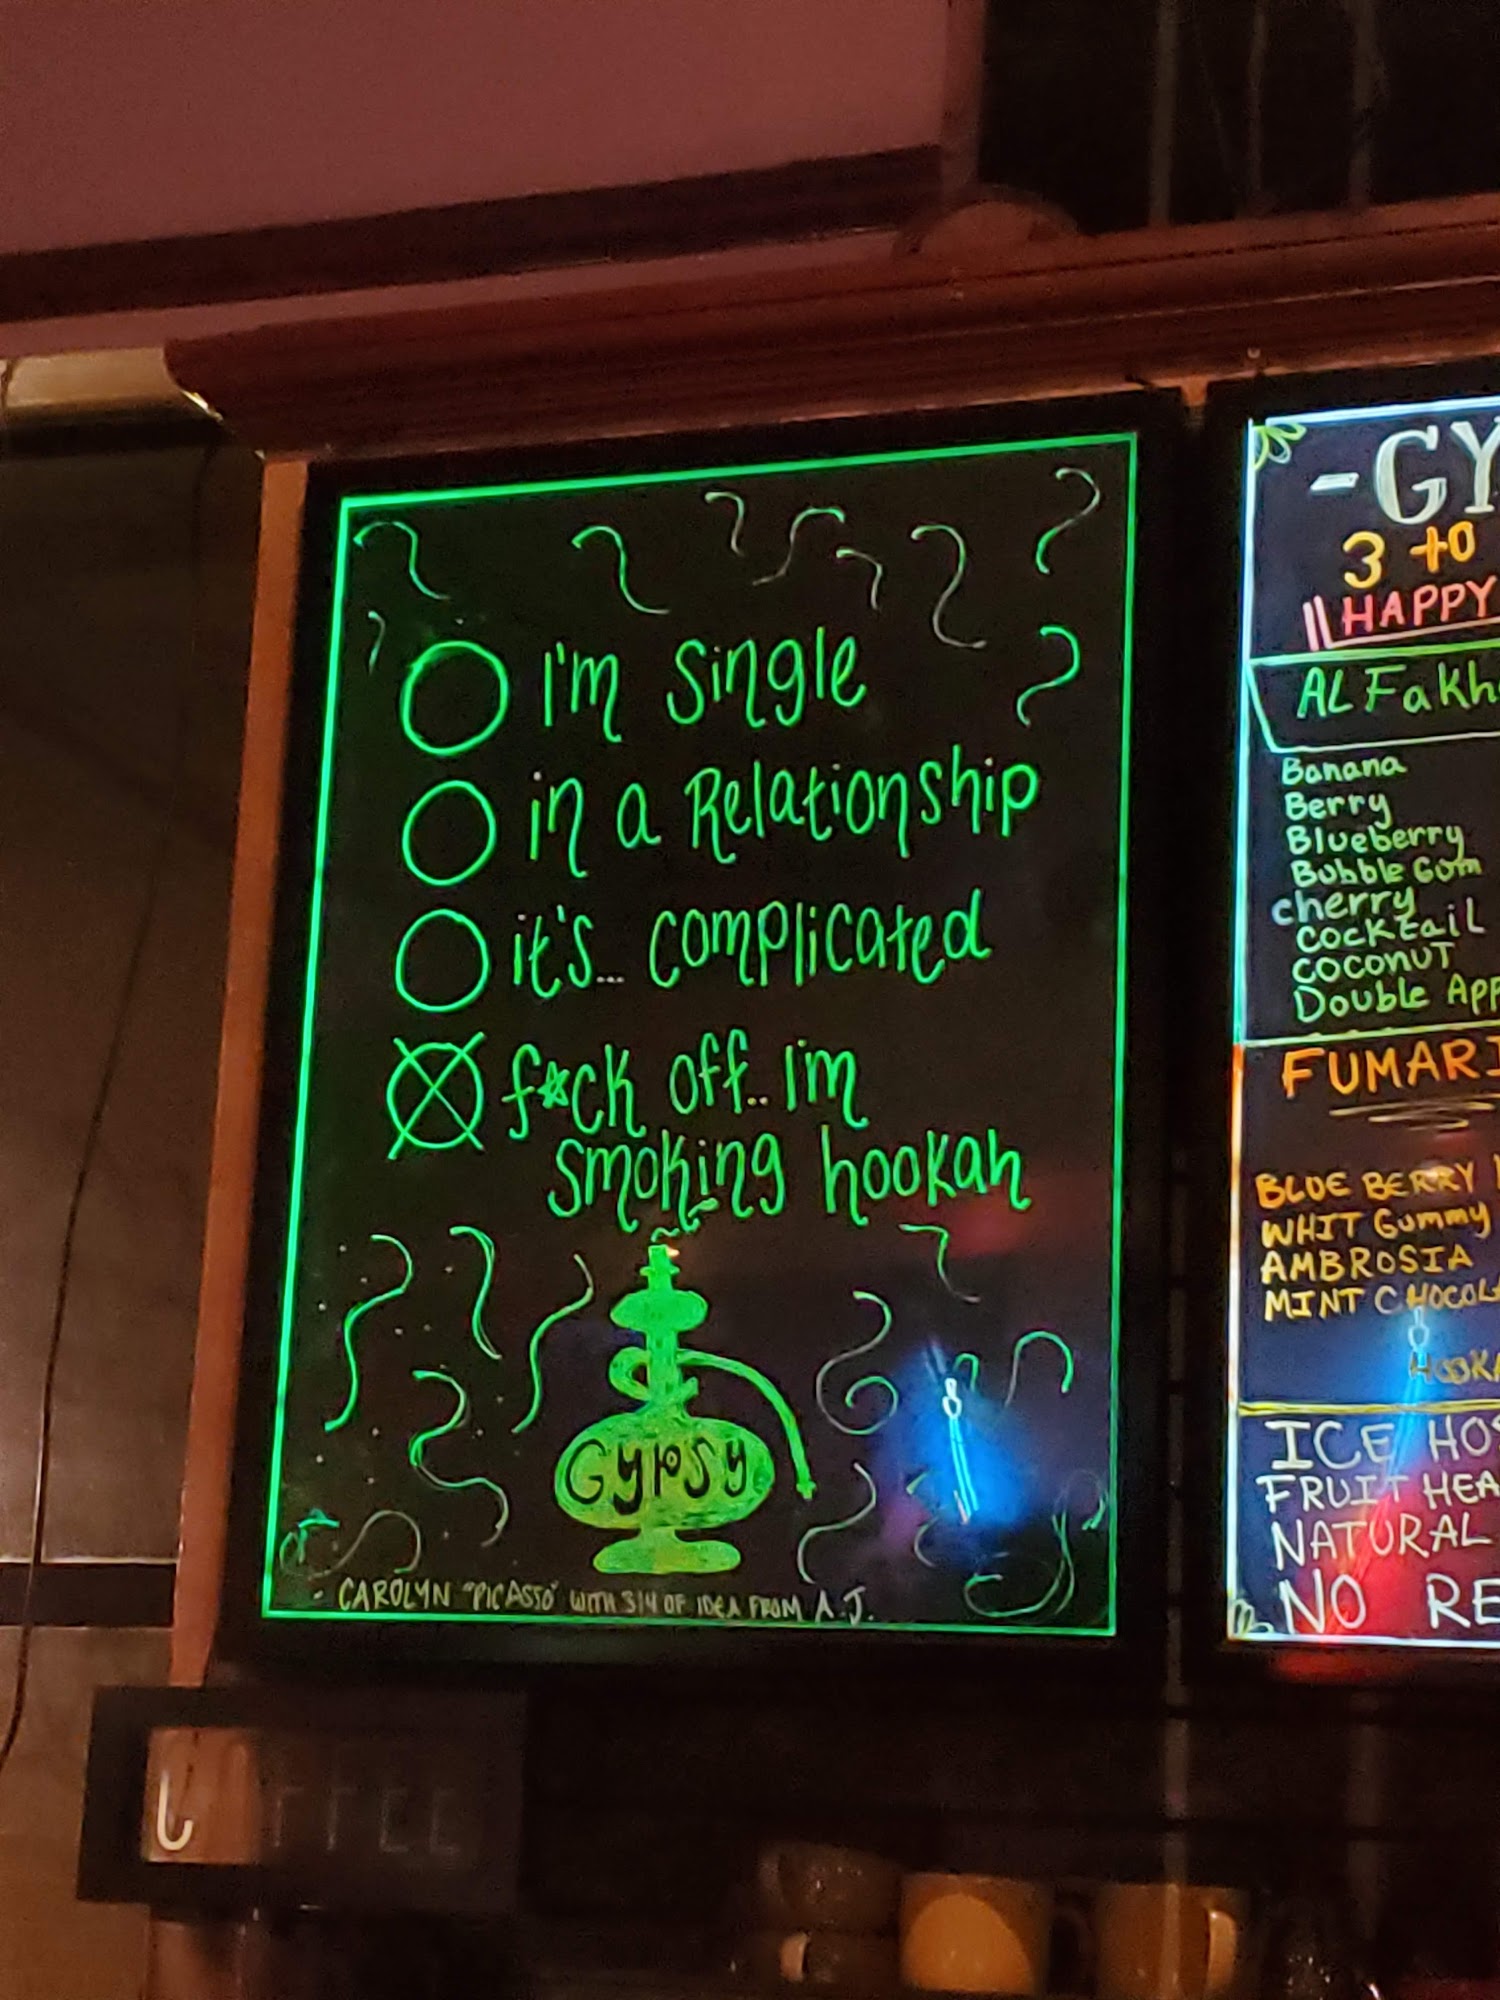 I'm single
in a Relationship
it's... complicated
f*ck off.. I'm
smoking hookah
Gypsy
- CAROLYN "PICASSO" WITH 3/4 OF IDEA FROM A.J.
-GY
3 to
HAPPY
AL Fakh
Banana
Berry
Blueberry
Bubble Gum
cherry
cocktail
coconut
Double App
FUMARI
BLUE BERRY
WHIT Gummy
AMBROSIA
MINT CHOCOL
HOOKA
ICE HOS
FRUIT HEA
NATURAL
NO RE